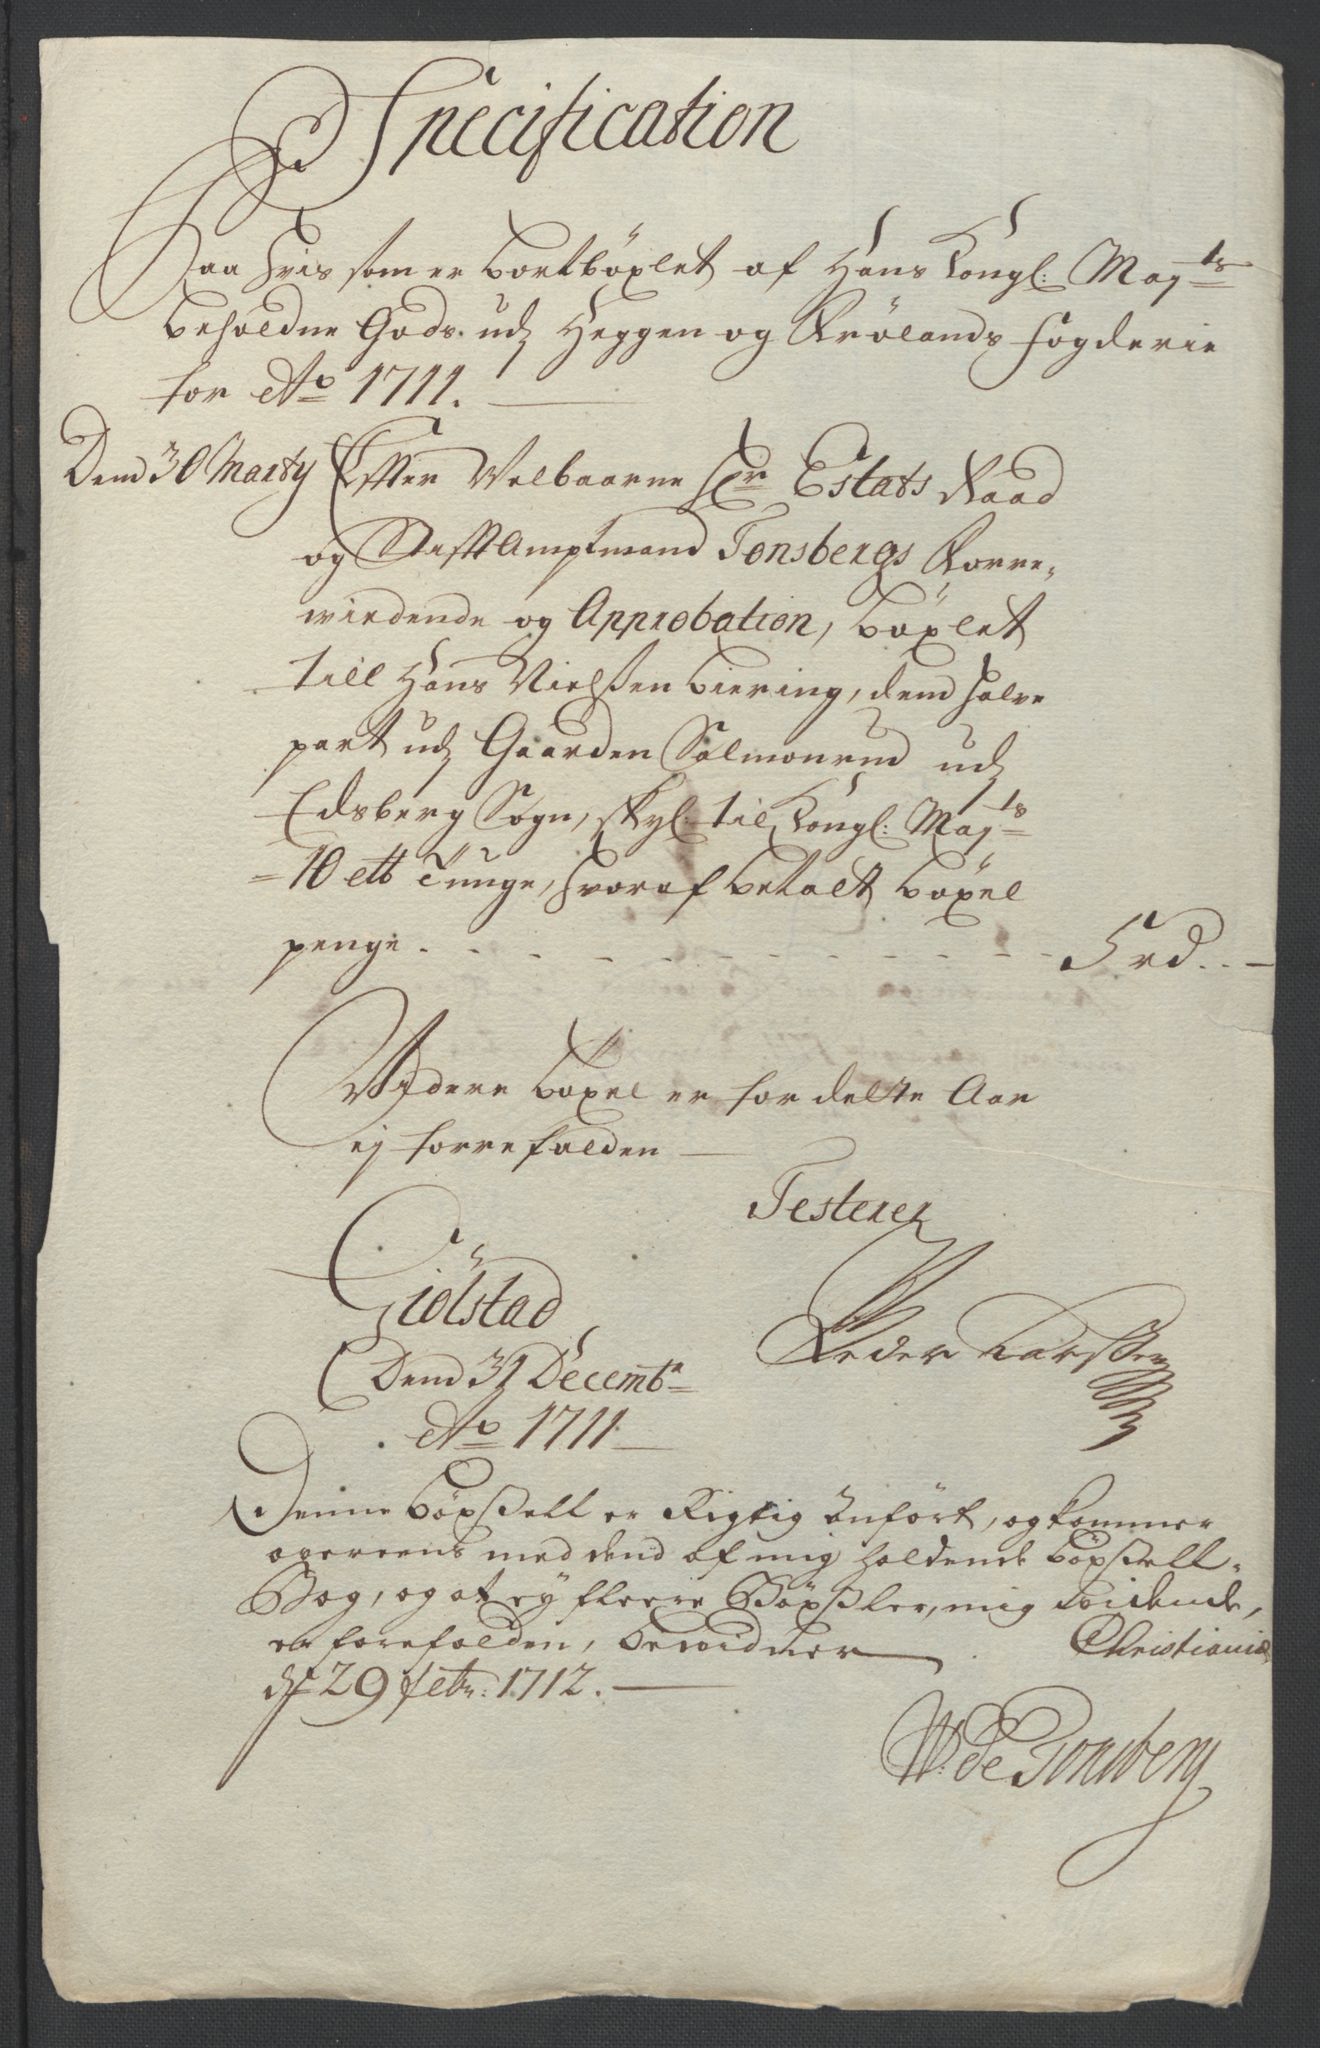 Specification
Paa hvis som er bortböxlet af Hans Kongl: Mayts
beholdne Gods. udj Heggen og Frölands fogderie
for Ao 1711.
Dend 30 Marty Effter Velbaarne Hr Estats Raad
og Stifftamptmand Tonsbergs
og Approbation, böxlet
till Hans Nielßen Biering, dend halve
part udj Gaarden Salmonrud udj
Edsberg Sogn, skyl: til Kongl: Mayts
10 Tunge, hvoraf betalt böxel
penge . - - - - - - - - - 5 rd. . -
Vjdere böxel er for dette Aar
ej forrefalden
Testerer
Giölstad
Dend 31 Decembr
Ao 1711
Peder Larßen
Denne böxßell er Rigtig Anfört, og kommer
overeens med dend af mig holdende böxßell-
Bog, og at ey fleere Böxßler, mig vidende,
er forefalden, bevidner Christiania
d 29 febr: 1712.
W: de Tonsberg